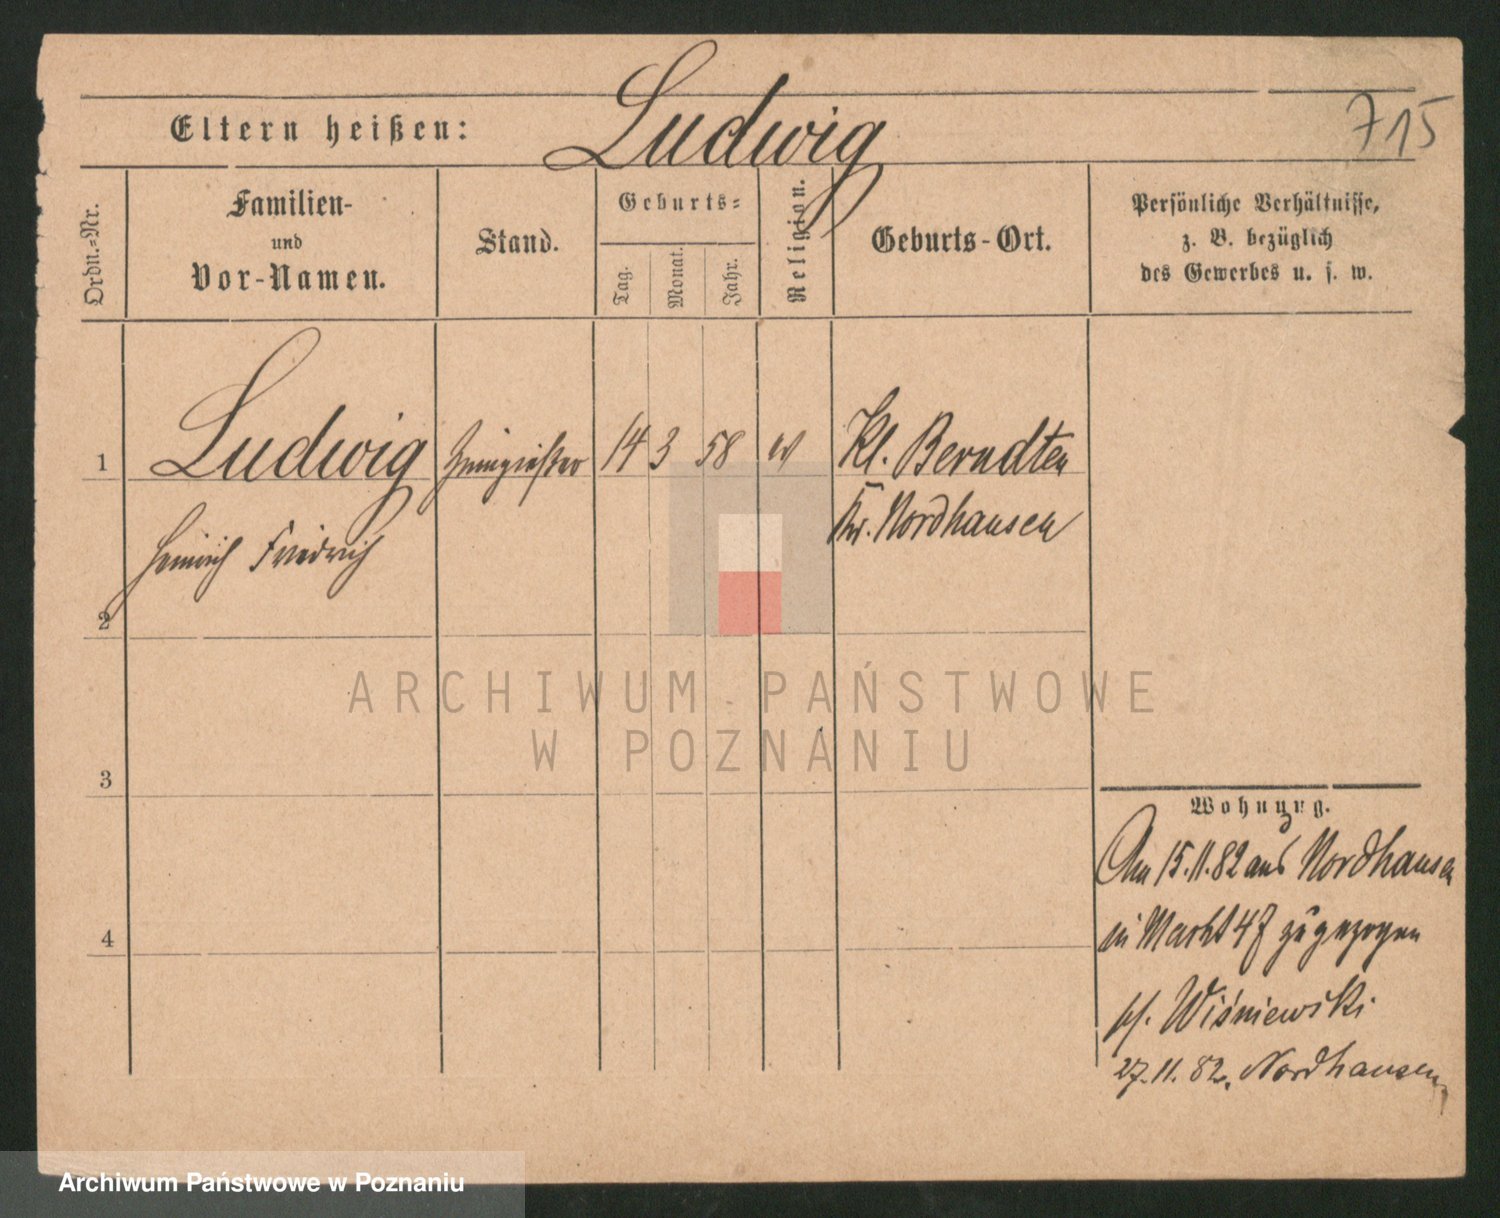 715
Eltern heißen: Ludwig
Ordn.-Nr.
Familien-
und
Vor-Namen.
Stand.
Geburts-
Tag.
Monat.
Jahr.
Religion.
Geburts-Ort.
Persönliche Verhältnisse,
z. B. bezüglich
des Gewerbes u. s. w.
1 Ludwig 14 3 58 Kl. Berndten
Kr. Nordhausen
Heinrich Friedrich
2
3
4
Wohnung.
Am 15.11.82 aus Nordhausen
in Markt 47 zugezogen
Wiśniewski
27.11.82. Nordhausen
ARCHIWUM PAŃSTWOWE
W POZNANIU
Archiwum Państwowe w Poznaniu